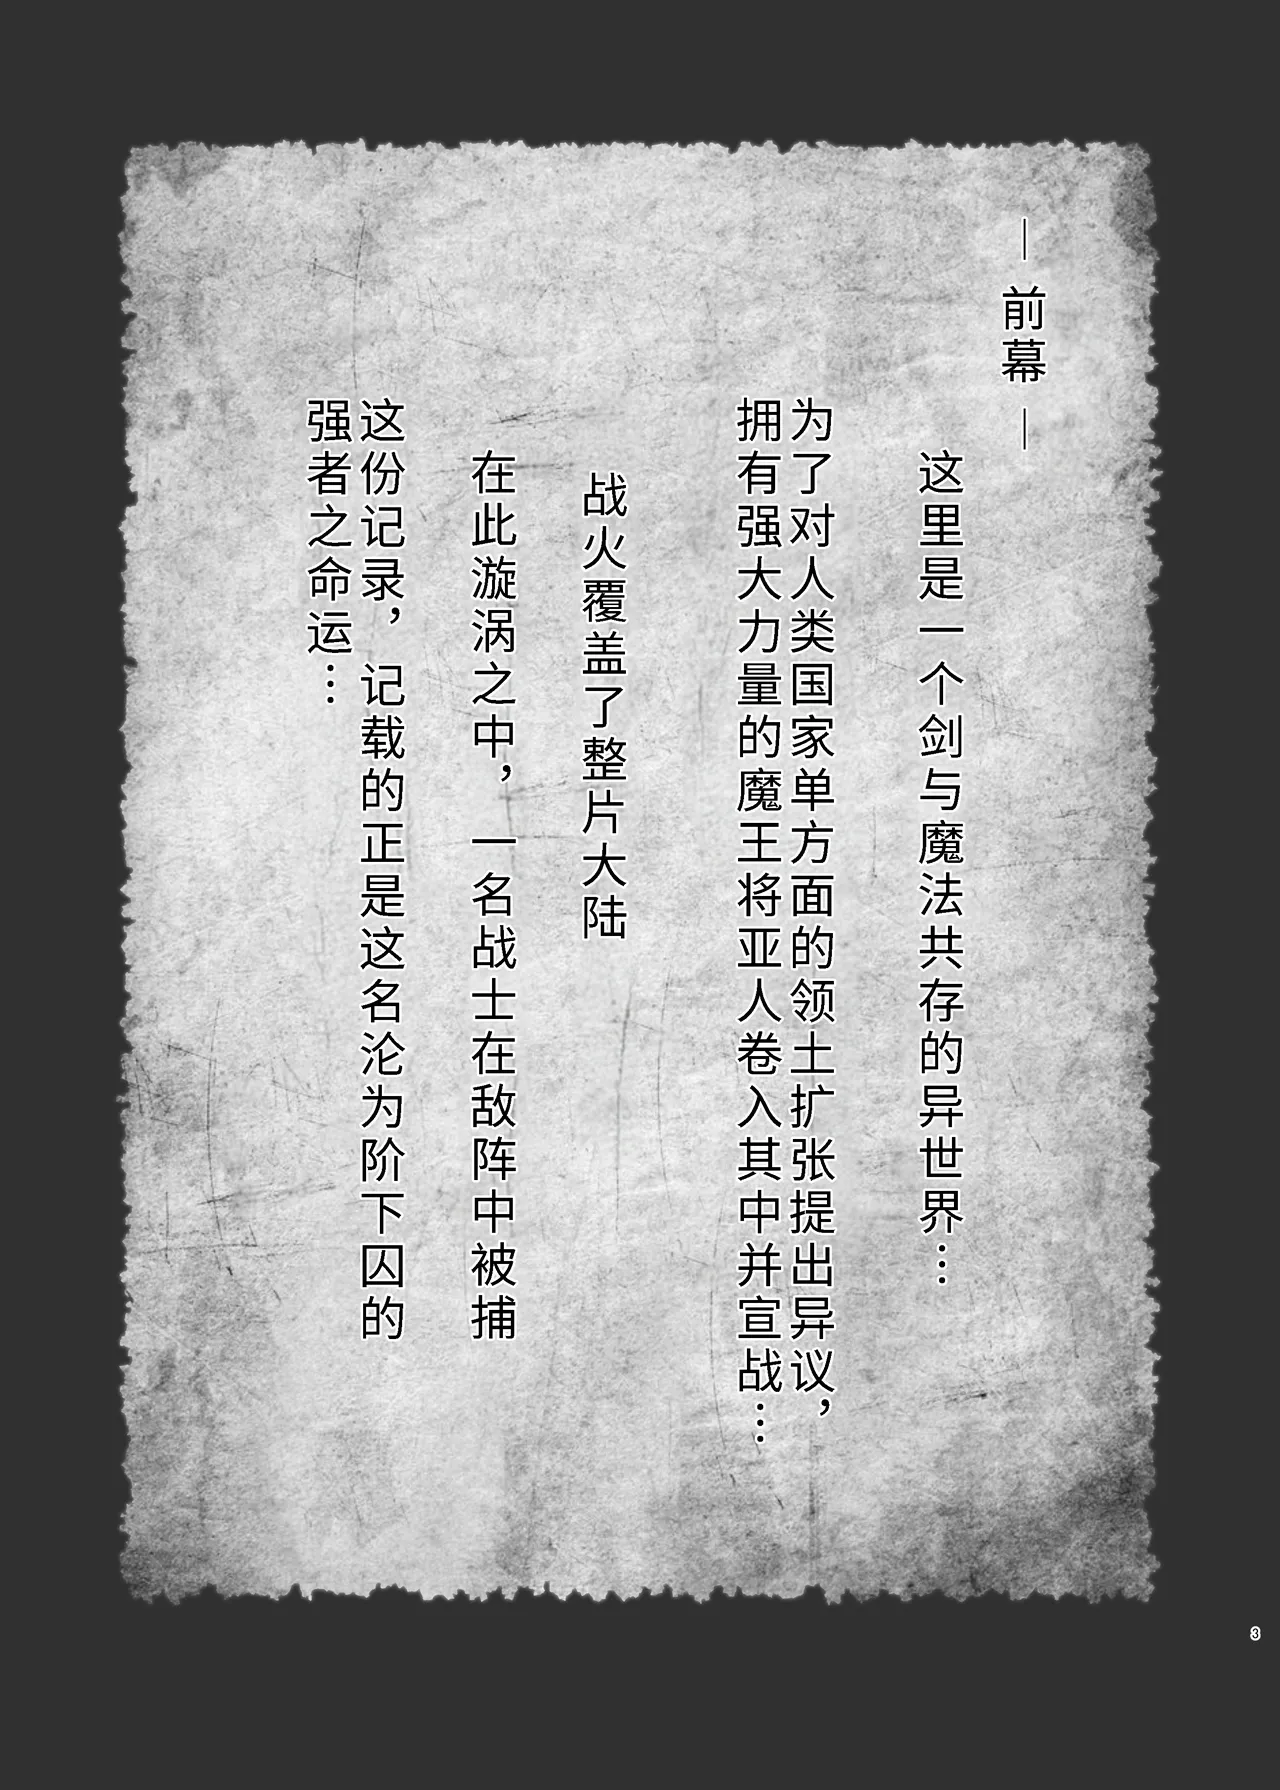 — 前幕 —
这里是一个剑与魔法共存的异世界…
为了对人类国家单方面的领土扩张提出异议，
拥有强大力量的魔王将亚人卷入其中并宣战…
战火覆盖了整片大陆
在此漩涡之中，一名战士在敌阵中被捕
这份记录，记载的正是这名沦为阶下囚的
强者之命运…
3